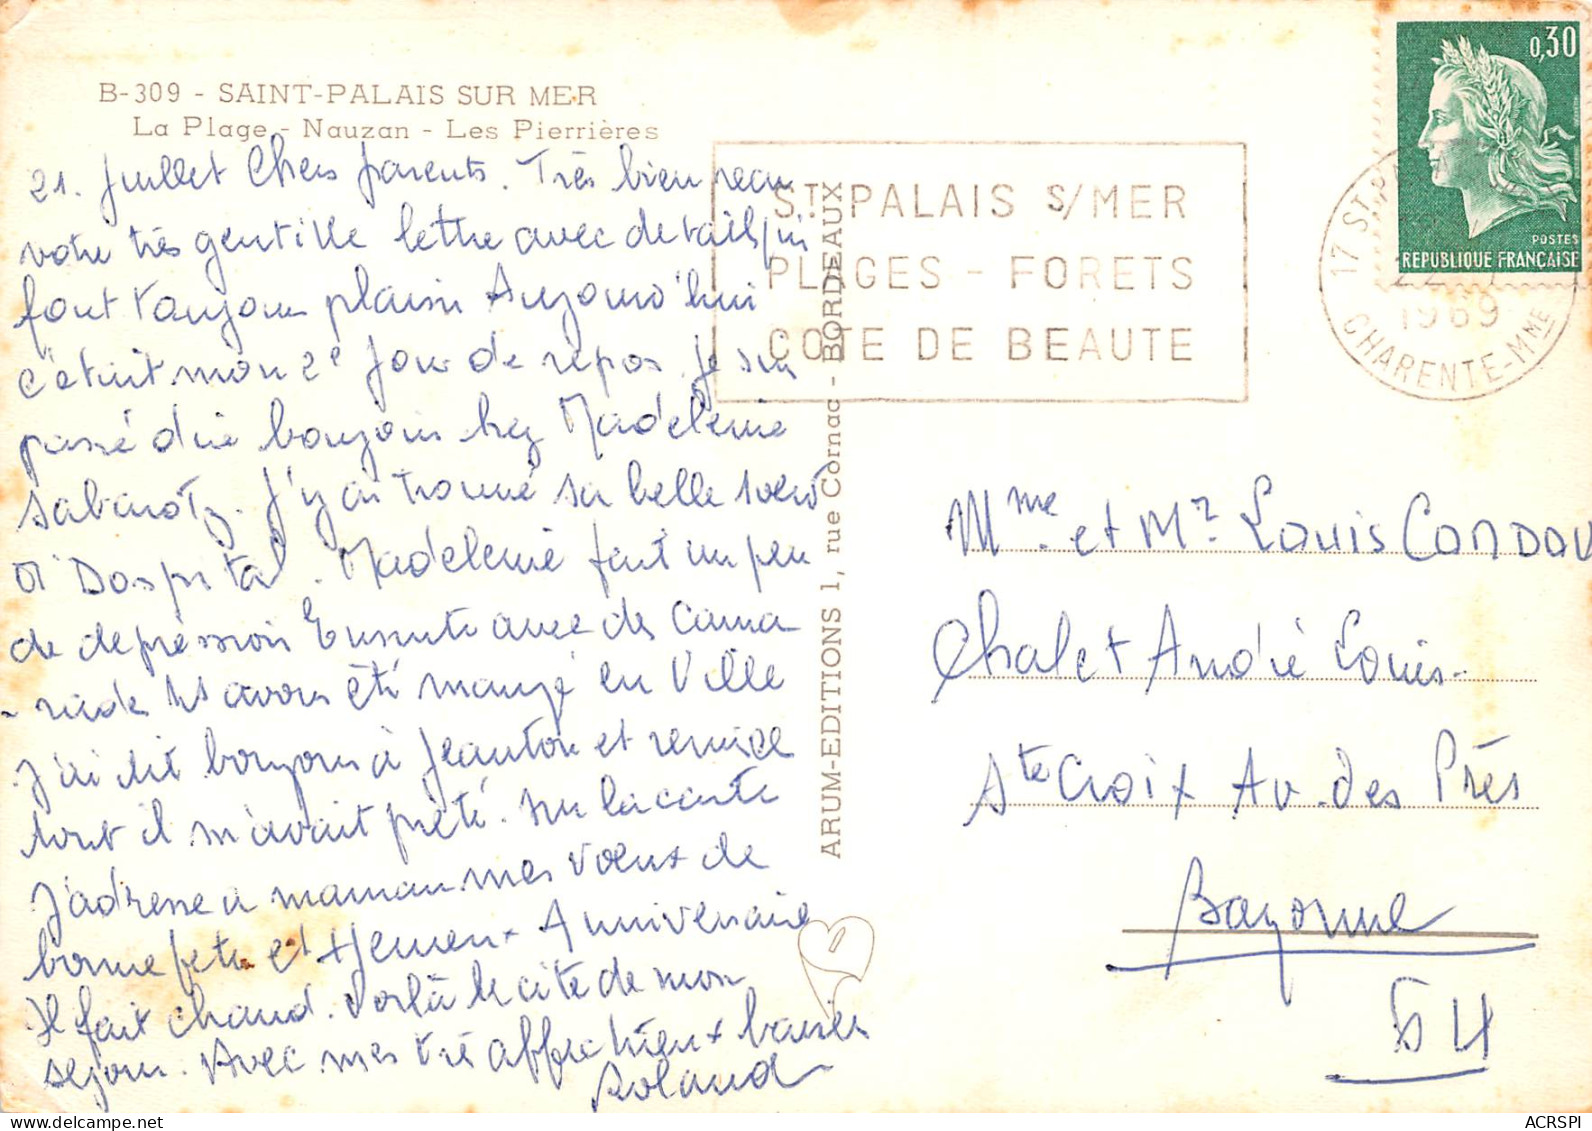 B-309 - SAINT-PALAIS SUR MER
La Plage - Nauzan - Les Pierrières
21. Juillet Chers parents. Très bien reçu
votre très gentille lettre avec details qui
font toujours plaisir Aujourd'hui
c'était mon 2e jour de repos. Je suis
passé dire bonjour chez Madeleine
Sabarotz. J'y ai trouvé sa belle soeur
D'Dospital. Madeleine fait un peu
de depression Ensuite avec des cama
- rades ns avons été mangé en Ville
J'ai dit bonjour à Jeanton et remise
tout il m'avait prêté. sur la carte
J'adresse a maman mes Vœux de
bonne fete et Heureux Anniversaire
Il fait chaud. Voilà le cité de mon
sejour. Avec mes très affectueux baisers
Roland
ARUM-EDITIONS 1, rue Cornac - BORDEAUX
ST PALAIS S/MER
PLAGES - FORETS
COTE DE BEAUTE
17 ST PA
22
1969
CHARENTE-MME
0,30
POSTES
REPUBLIQUE FRANÇAISE
Mme et Mr Louis CONDOU
Chalet André Louis
Ste Croix Av. des Près
Bayonne
64
ACRSPI